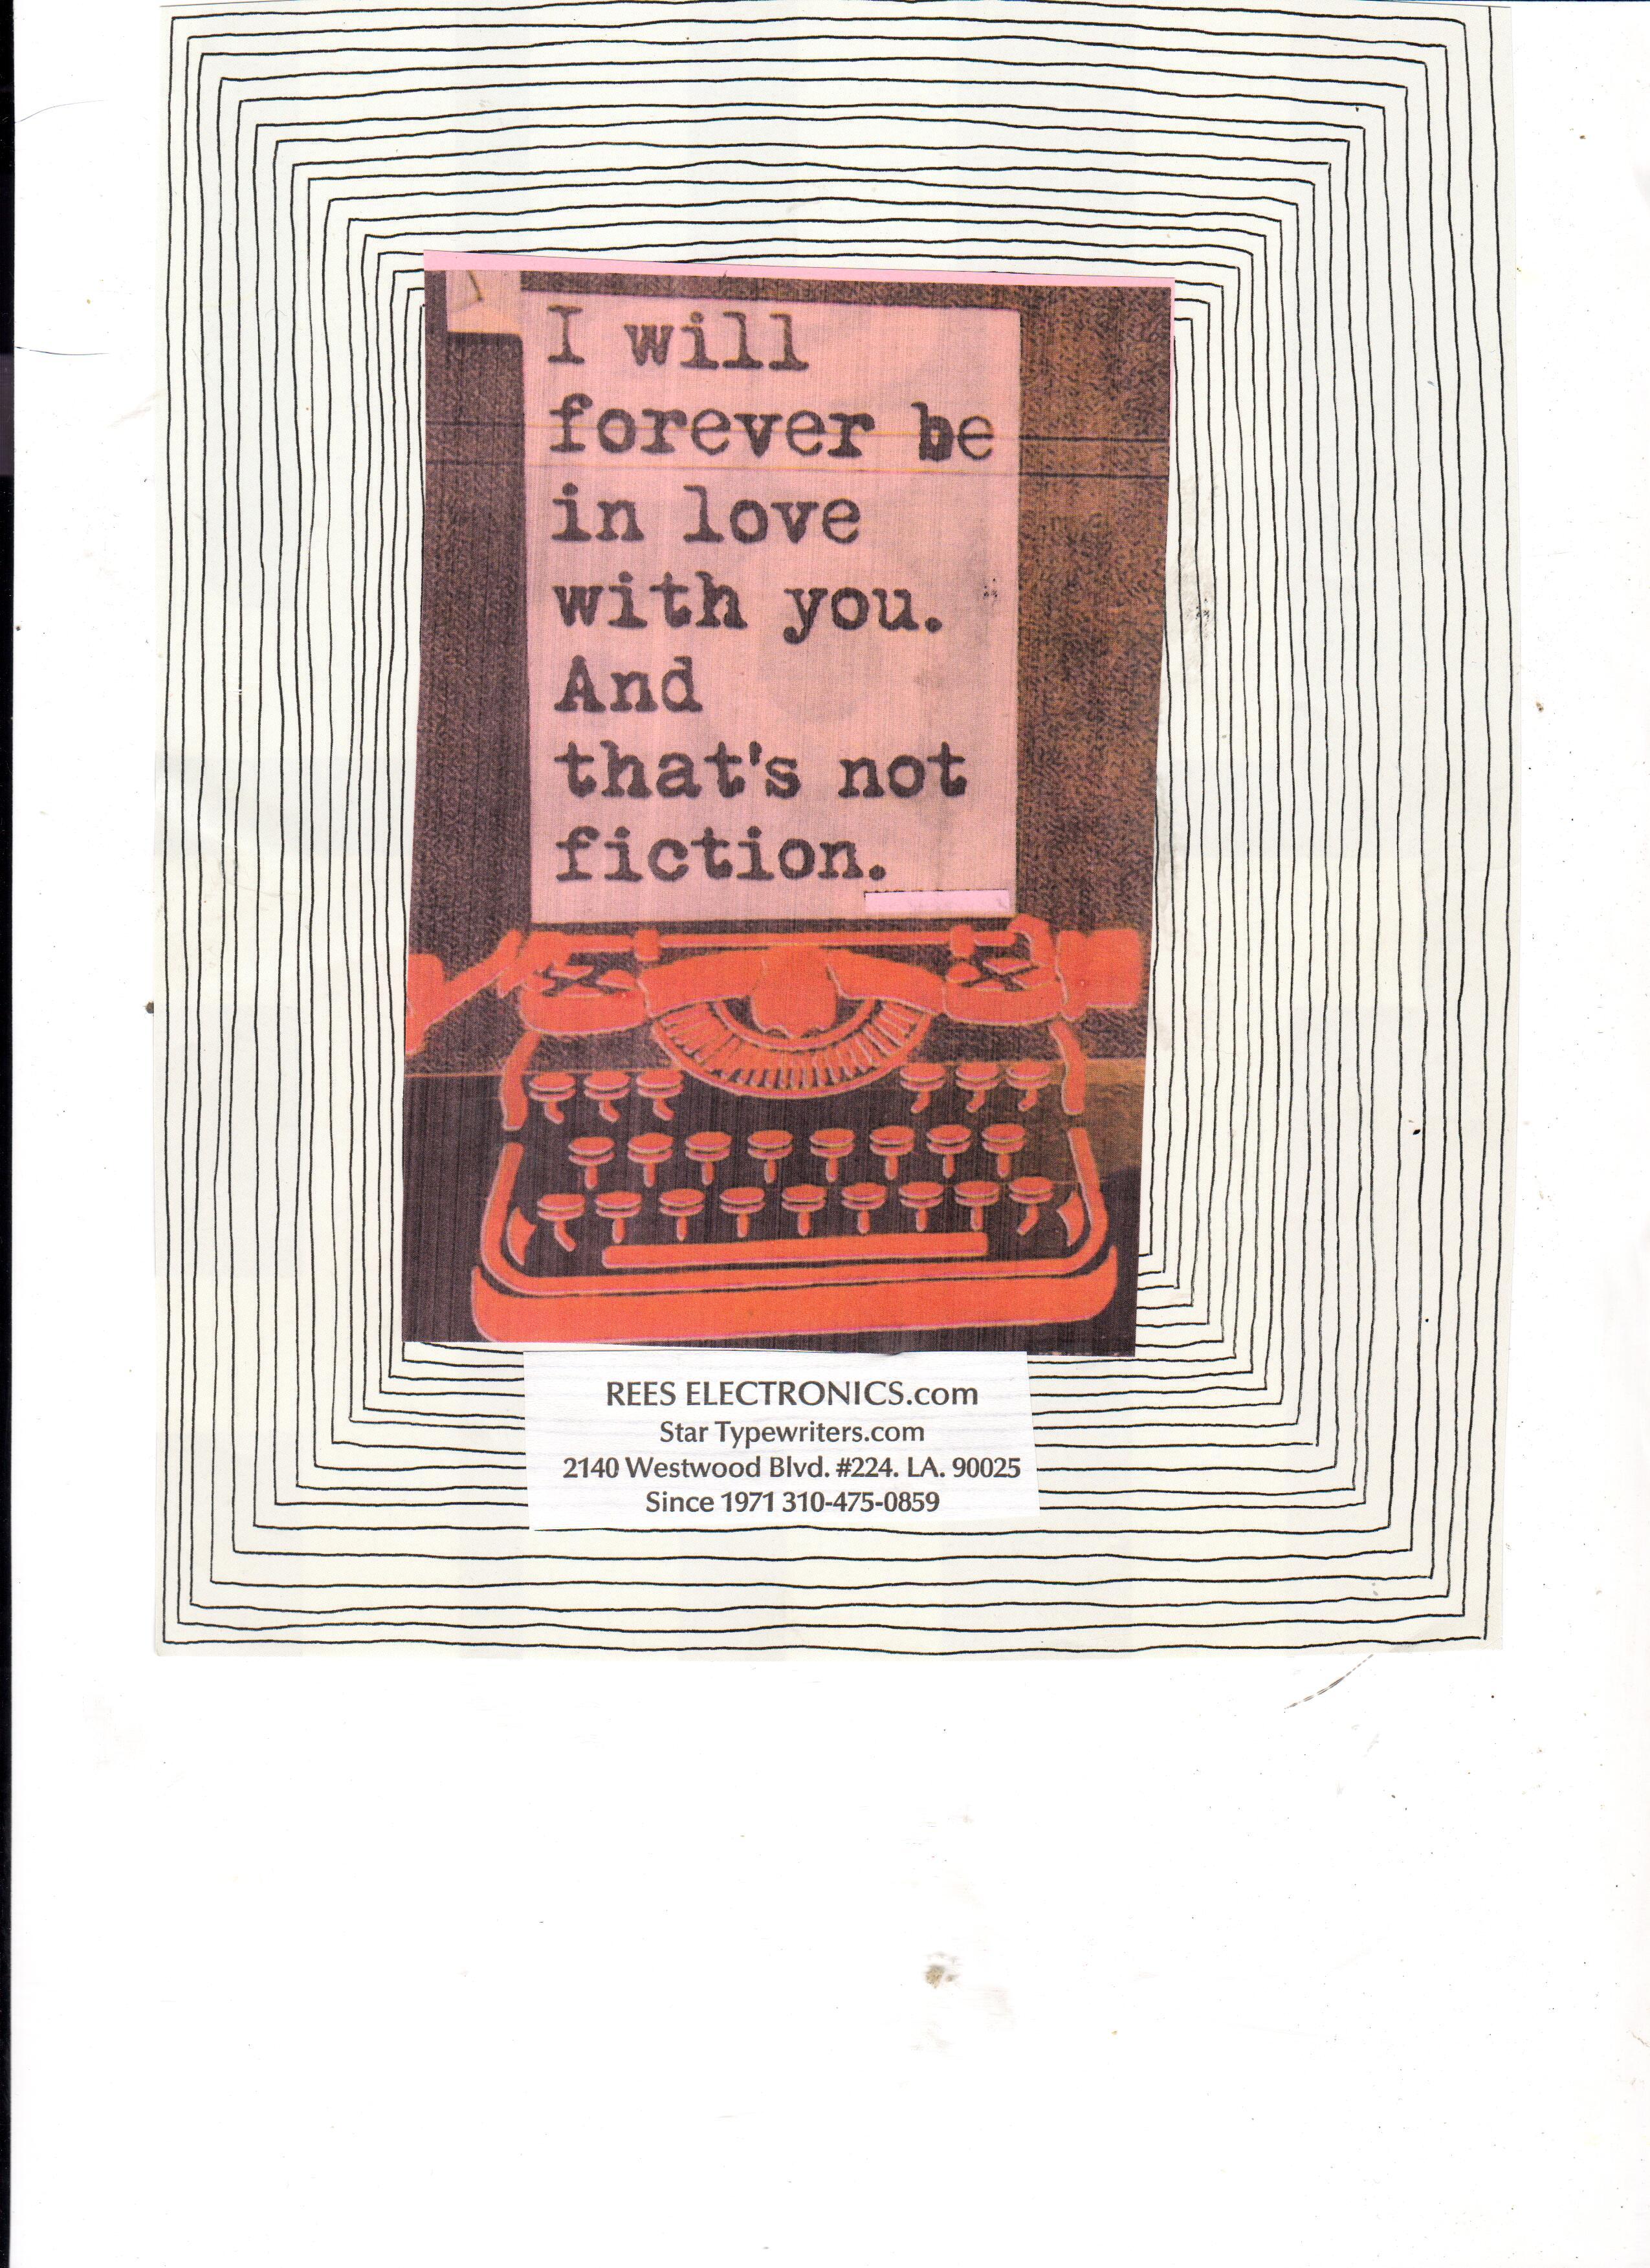 I will
forever be
in love
with you.
And
that's not
fiction.
REES ELECTRONICS.com
Star Typewriters.com
2140 Westwood Blvd. #224. LA. 90025
Since 1971 310-475-0859